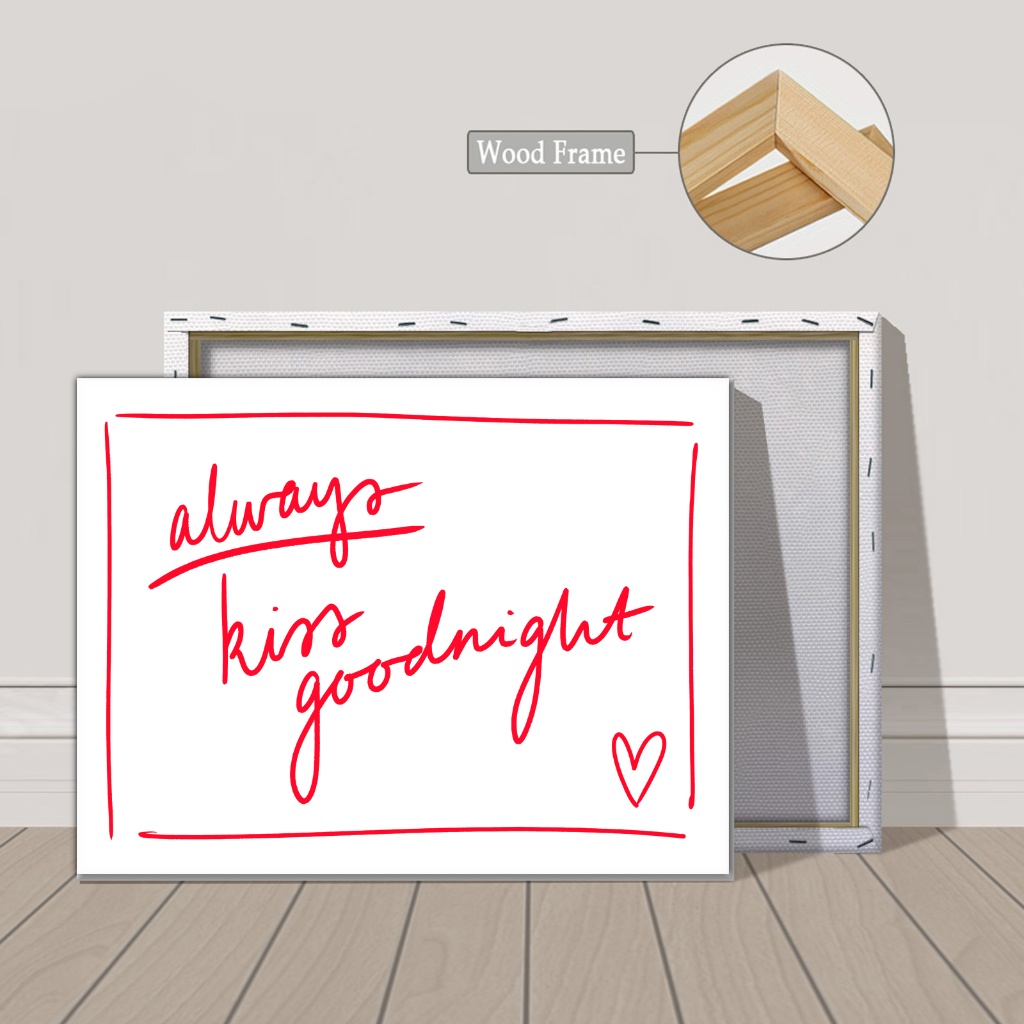 Wood Frame
always
kiss
goodnight